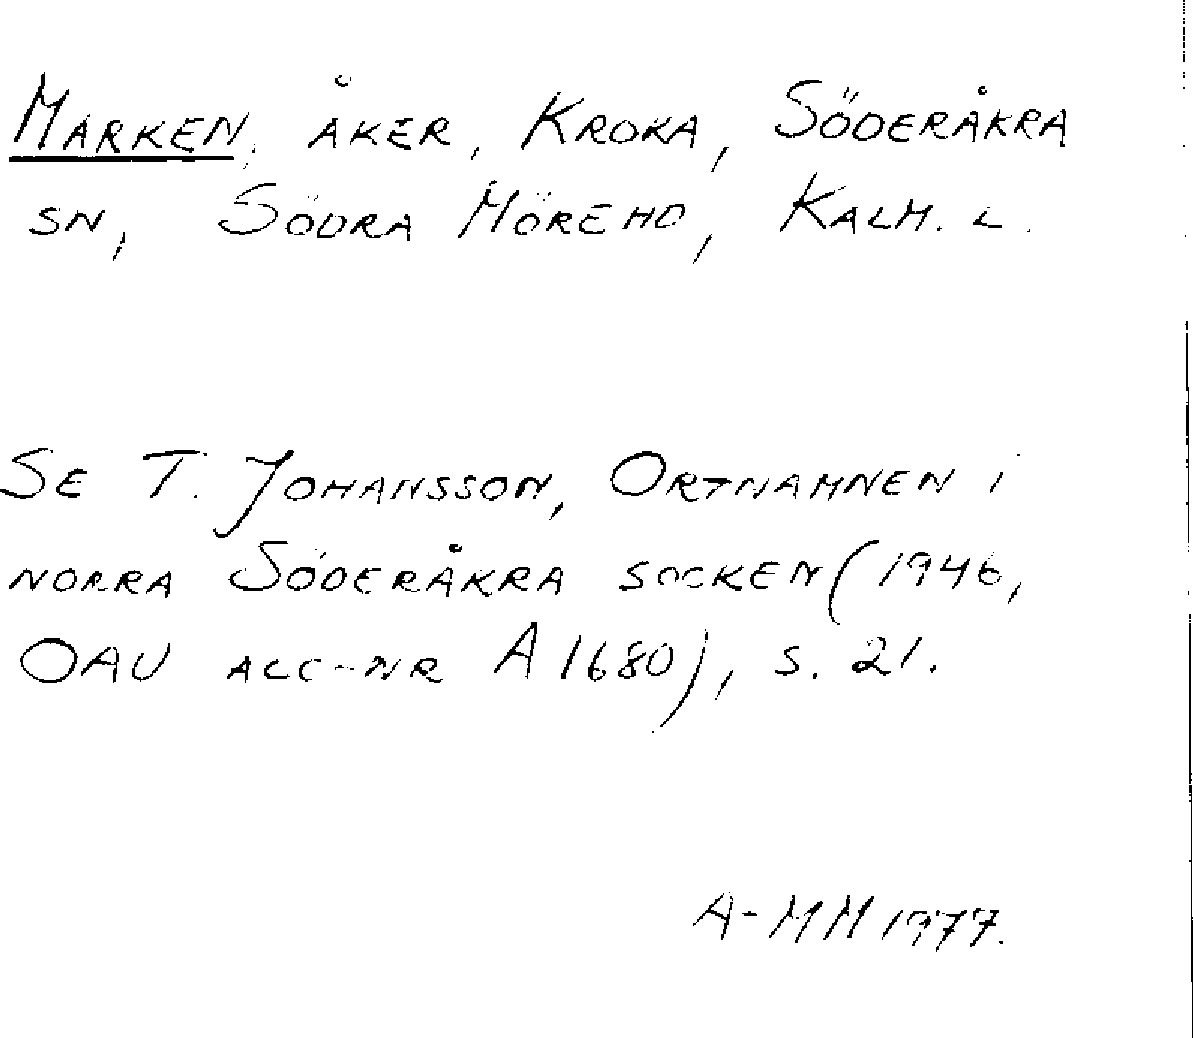 MARKEN, ÅKER, KROKA, SÖDERÅKRA
SN, SÖDRA MÖRE HD, KALM. L.
SE T. JOHANSSON, ORTNAMNEN I
NORRA SÖDERÅKRA SOCKEN (1946,
OAU ACC-NR A 1680), S. 21.
A-MM 1977.